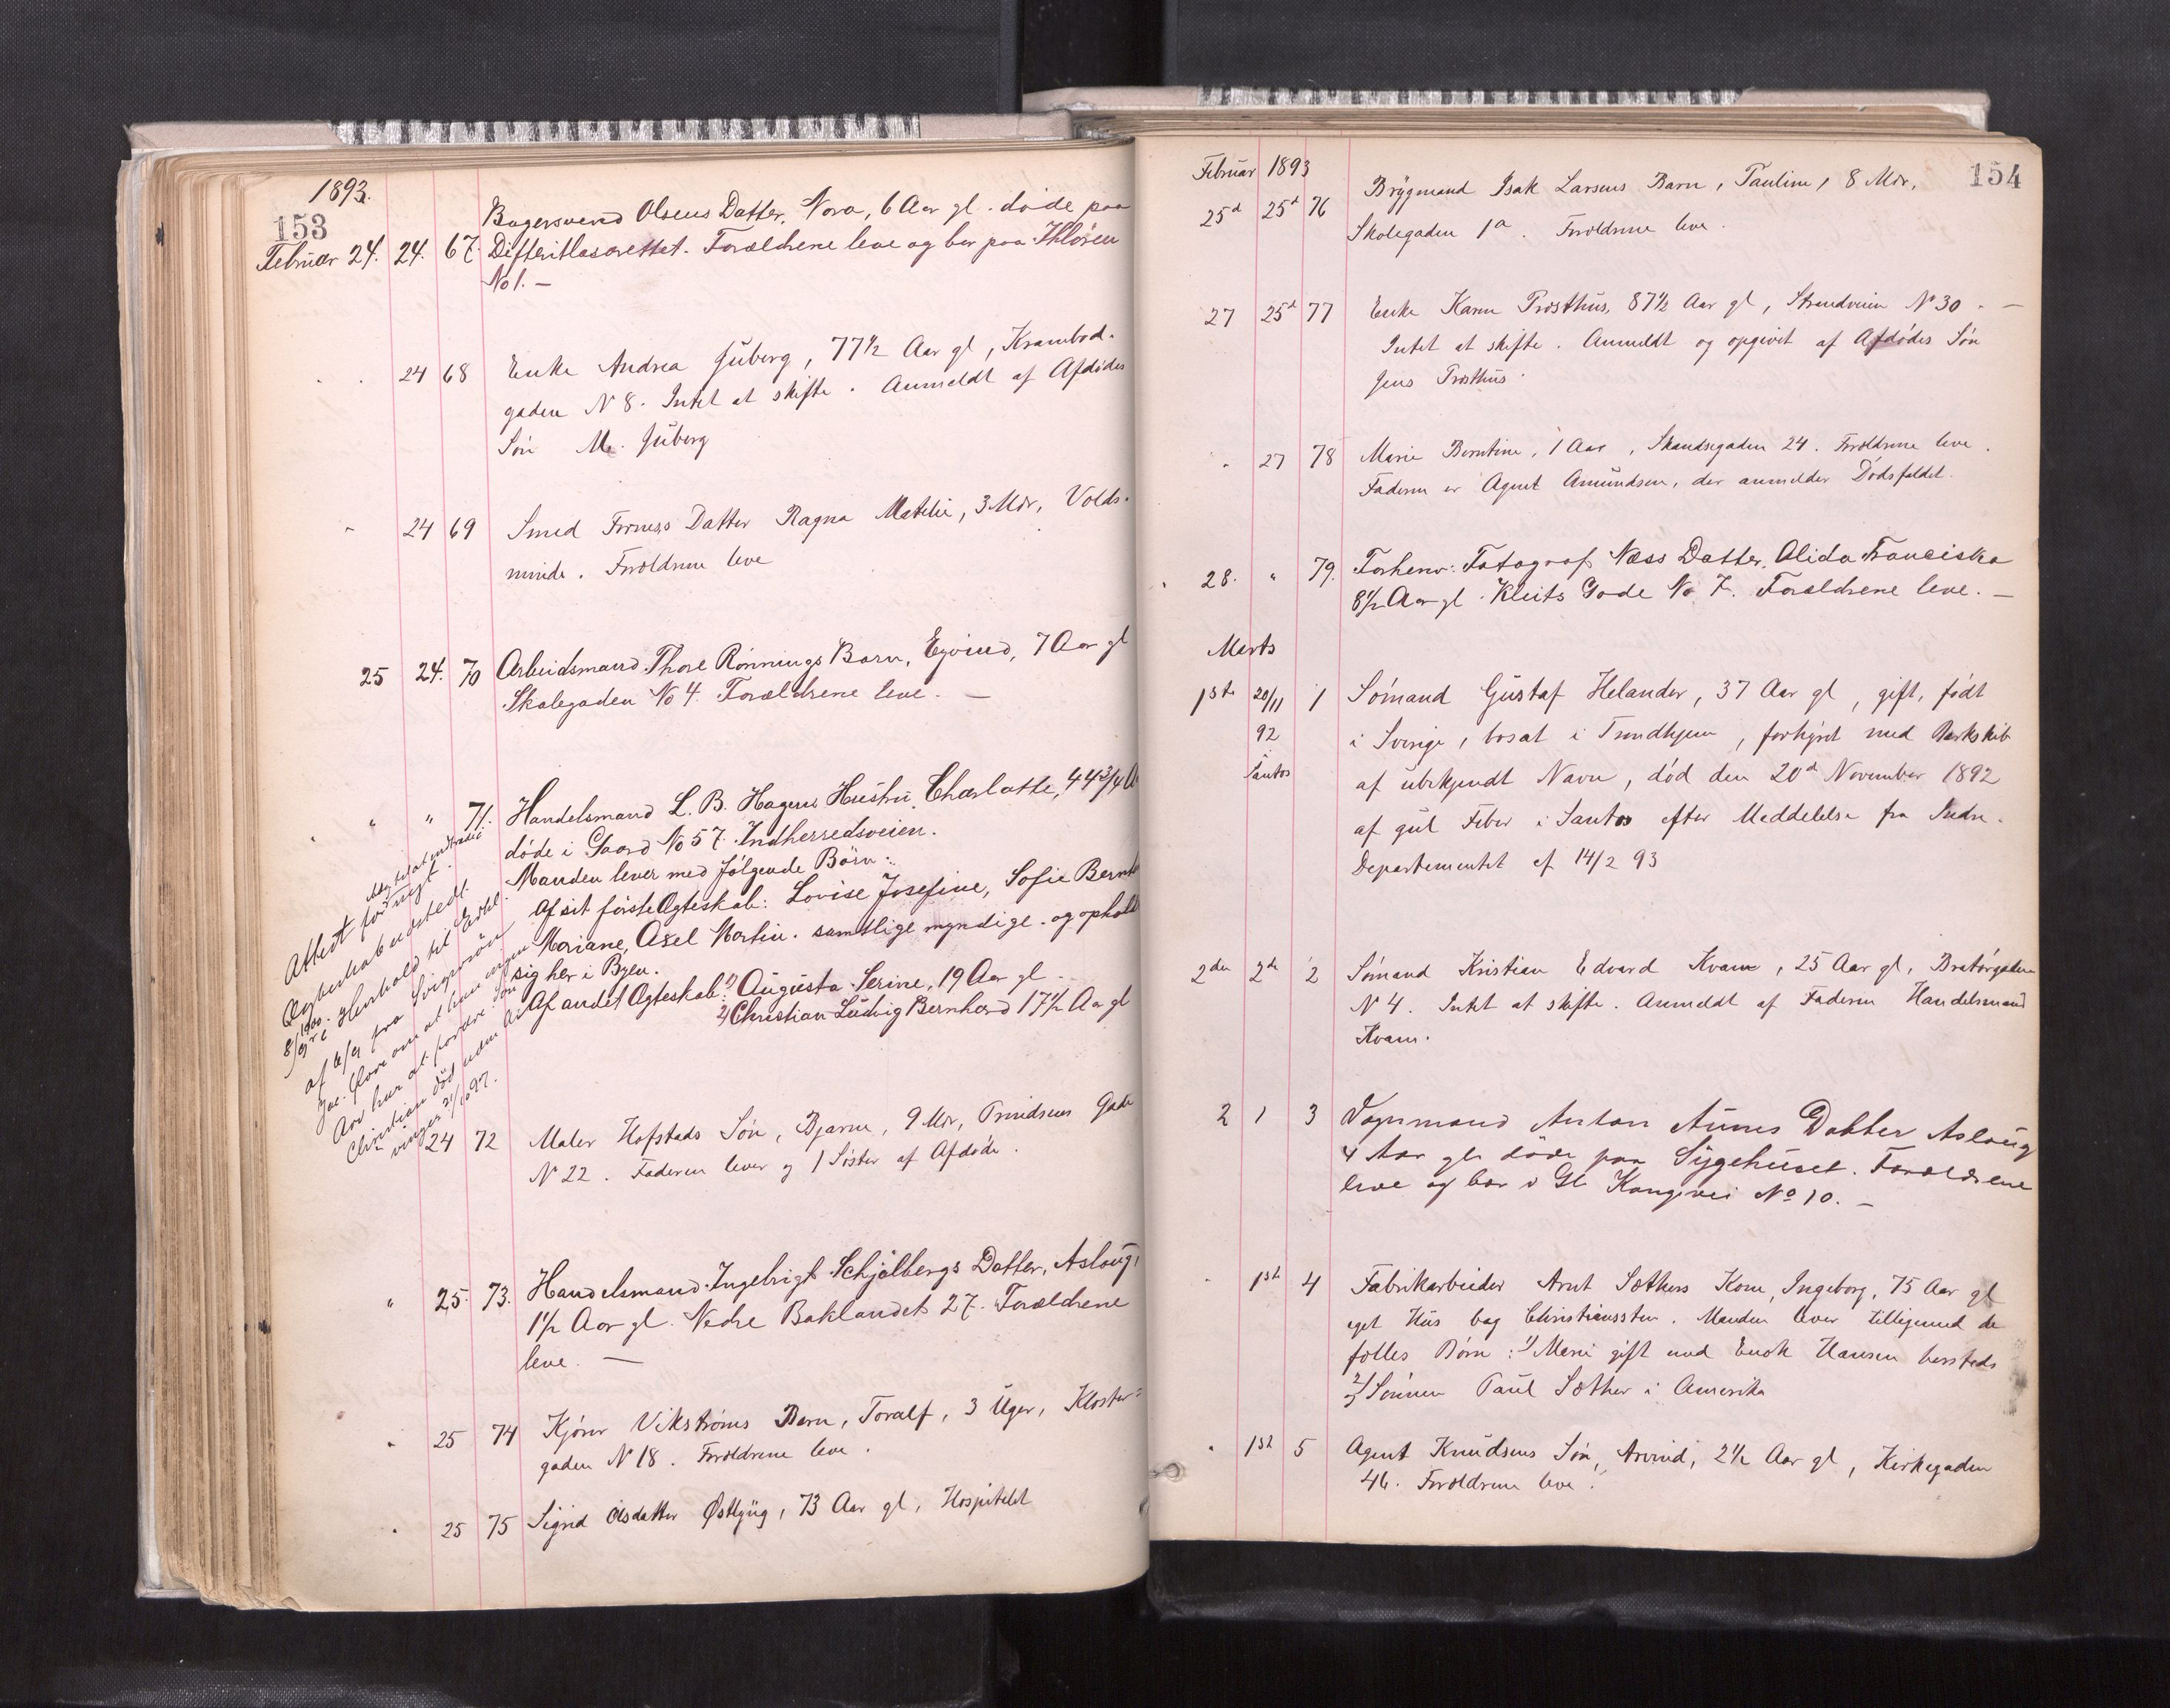 1893.
153
Bagersvend Olsens Datter, Nora, 6 Aar gl. døde paa
Februar 24. 24. 67. Difteritlasarettet. Forældrene leve og bor paa Ihløren
No 1. —
24 68 Enke Andrea Juberg, 77 1/2 Aar gl, Krambod-
gaden N 8. Intet at skifte. Anmeldt af Afdødes
Søn M. Juberg
" 24 69 Smed Datter Ragna Matilie, 3 Mdr, Volds-
minde. Forældrene leve
25 24. 70 Arbeidsmand Thore Rønnings Barn, Eyvind, 7 Aar gl
Skolegaden No 4. Forældrene leve. —
" " 71. Handelsmand L. B. Hagens Hustru, Charlotte, 44 3/4 A
døde i Gaard No 57 Indherredsveien.
Manden lever med følgende Børn:
Af sit første Ægteskab: Lovise Josefine, Sofie Bernt
Mariane, Axel Martin. samtlige myndige og ophold
sig her i Byen.
Af andet Ægteskab: 1) Augusta Serine, 19 Aar gl.
2) Christian Ludvig Bernhard 17 1/2 Aar gl
Attest for
af 6/9 fra Svigersøn
om at han ingen
Arv har at fordre. Søn
Christian død uden Ar-
vinger 21/10 97.
24 72 Maler Hofstads Søn, Bjarne, 9 Mdr, Gade
N 22. Faderen lever og 1 Søster af Afdøde.
" 25. 73. Handelsmand Ingebrigt Schjølbergs Datter, Aslaug,
1 1/2 Aar gl. Nedre Baklandet 27. Forældrene
leve. —
" 25 74 Kjører Vikstrøms Barn, Toralf, 3 Uger, Kloster-
gaden N 18. Forældrene leve.
" 25 75 Sigrid Olsdatter Østlyng, 73 Aar gl, Hospitalet
154
Februar 1893
Bryggmand Isak Larsens Barn, Pauline, 8 Mdr,
25d 25d 76 Skolegaden 1a. Forældrene leve.
27 25d 77 Enke Karen Prøsthus, 87 1/2 Aar gl, Strandveien No 30. —
Intet at skifte. Anmeldt og opgivet af Afdødes Søn
Jens Prøsthus.
" 27 78 Marie Berntine, 1 Aar, Skandsegaden 24. Forældrene leve.
Faderen er Agent Amundsen, der anmelder Dødsfaldet.
" 28. " 79. Forhenv: Fotograf Næss Datter, Alida Franciska
8 1/2 Aar gl. Kleits Gade No 7. Forældrene leve. —
Marts
1ste 20/11 1 Sømand Gustaf Helander, 37 Aar gl, gift, født
92 i Sverige, bosat i Trondhjem, forhyret med Barkskib
i Santos af ubekjendt Navn, død den 20d November 1892
af gul Feber i Santos efter Meddelelse fra Indre-
Departementet af 14/2 93
2den 2de 2 Sømand Kristian Edvard Kvam, 25 Aar gl, Bratørgaden
N 4. Intet at skifte. Anmeldt af Faderen Handelsmand
Kvam.
2 1 3 Vognmand Anton Aunes Datter Aslaug
4 Aar gl. døde paa Sygehuset. Forældrene
leve og bor i Gl. Kongevei No 10. —
" 1ste 4 Fabrikarbeider Arnt Sæthers Kone, Ingeborg, 75 Aar gl
eget Hus bag Christianssten. Manden lever tilligemed de
fælles Børn: 1) Marie gift med Enok Hansen herstads
2) Sønnen Paul Sæther i Amerika
" 1ste 5 Agent Knudsens Søn, Arvid, 2 1/2 Aar gl, Kirkegaden
46. Forældrene leve.